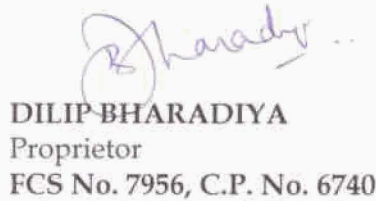 Bharadiya
DILIP BHARADIYA
Proprietor
FCS No. 7956, C.P. No. 6740